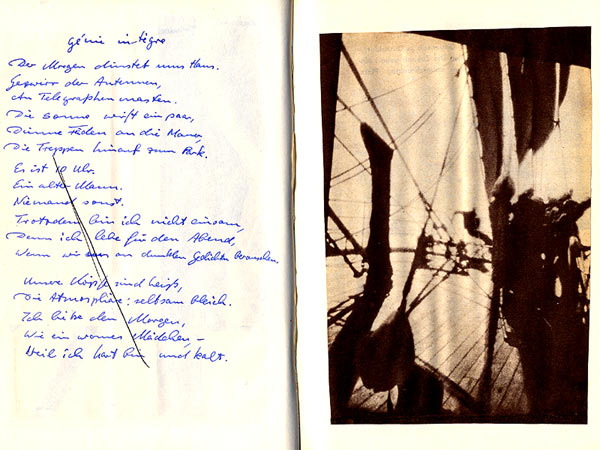 génie intègre
Der Morgen dünstet ums Haus.
Gewirr der Antennen,
An Telegraphenmasten.
Die Sonne wirft ein paar,
Dünne Fäden an die Mauer,
Die Treppen hinauf zum Park.
Es ist 10 Uhr.
Ein alter Mann.
Niemand sonst.
Trotzdem bin ich nicht einsam,
Denn ich lebe für den Abend,
Wenn wir uns an dunklen Gedichten berauschen.
Unsre Köpfe sind heiß,
Die Atmosphäre: seltsam bleich.
Ich liebe den Morgen,
Wie ein warmes Mädchen, –
Weil ich hart bin und kalt.